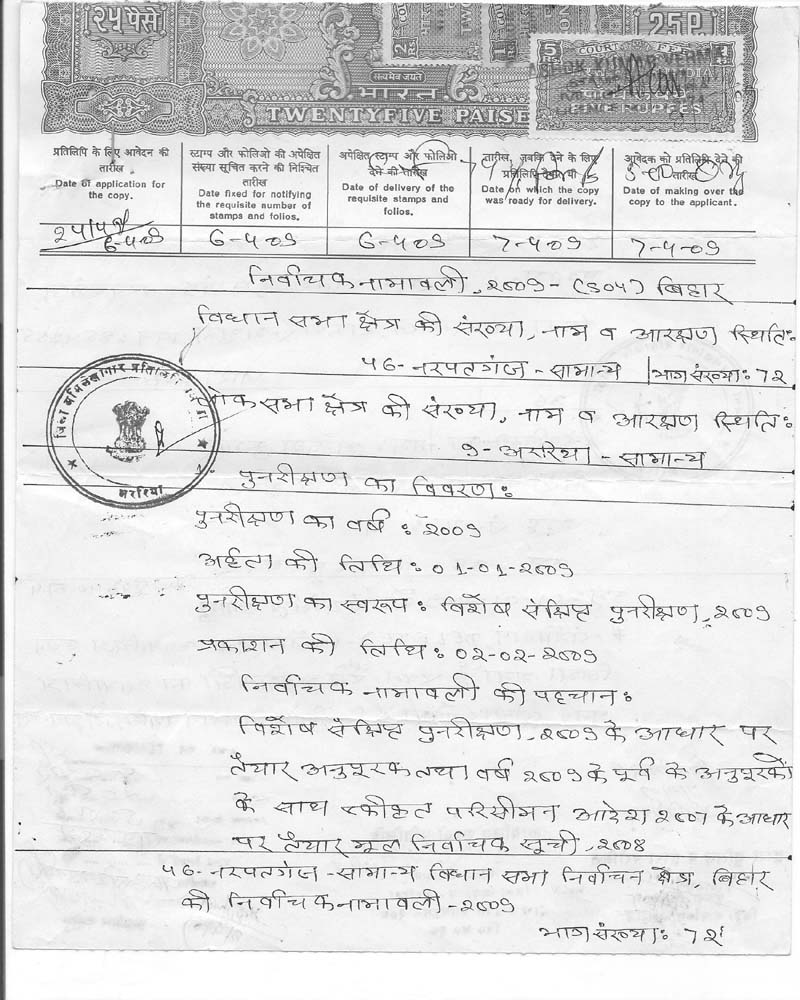 २५ पैसे
25P
COURT FEE
सत्यमेव जयते
भारत
TWENTYFIVE PAISE
RUPEES
प्रतिलिपि के लिए आवेदन की तारीख
Date of application for the copy.
स्टाम्प और फोलिओ की अपेक्षित संख्या सूचित करने की निश्चित तारीख
Date fixed for notifying the requisite number of stamps and folios.
अपेक्षित स्टाम्प और फोलिओ देने की तारीख
Date of delivery of the requisite stamps and folios.
तारीख, जबकि देने के लिए
Date on which the copy was ready for delivery.
आवेदक को प्रतिलिपि देने की तारीख
Date of making over the copy to the applicant.
६-४-०९ ६-४-०९ ६-४-०९ ७-४-०९ ७-४-०९
निर्वाचक नामावली, २००९ - (S04) बिहार
विधान सभा क्षेत्र की संख्या, नाम व आरक्षण स्थिति:
४६- नरपतगंज - सामान्य भाग संख्या: ७२
लोक सभा क्षेत्र की संख्या, नाम व आरक्षण स्थिति:
९- अररिया - सामान्य
पुनरीक्षण का विवरण:
पुनरीक्षण का वर्ष : २००९
अर्हता की तिथि : ०१-०१-२००९
पुनरीक्षण का स्वरूप : विशेष संक्षिप्त पुनरीक्षण, २००९
प्रकाशन की तिथि : ०२-०२-२००९
निर्वाचक नामावली की पहचान :
विशेष संक्षिप्त पुनरीक्षण, २००९ के आधार पर
तैयार अनुपूरक तथा वर्ष २००९ के पूर्व के अनुपूरकों
के साथ एकीकृत परिसीमन आदेश २००७ के आधार
पर तैयार मूल निर्वाचक सूची, २००८
४६- नरपतगंज - सामान्य विधान सभा निर्वाचन क्षेत्र, बिहार
की निर्वाचक नामावली - २००९
भाग संख्या: ७२
अररिया